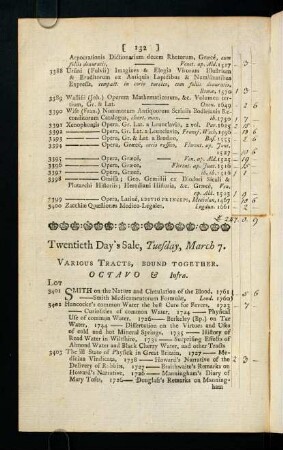 [ 132 ]
Arpocrationis Dictionarium decem Rhetorum, Græcè, cum
foliis deauratis, Venet. ap. Ald. 1527
3388 Ursini (Fulvii) Imagines & Elogia Virorum Illustrium
& Eruditorum ex Antiquis Lapidibus & Nomismatibus
Expressa, compact. in corio turcico, cum foliis deauratis,
Romæ, 1570
3389 Wallisii (Joh.) Operum Mathematicorum, &c. Volumen ter-
tium, Gr. & Lat. Oxon. 1699
3390 Wise (Fran.) Nummorum Antiquorum Scriniis Bodleianis Re-
conditorum Catalogus, chart. max. ib. 1750
3391 Xenophontis Opera Gr. Lat. a Leunclavio, 2 vol. Par. 1625
3392 Opera, Gr. Lat. a Leunclavio, Francf. Wech. 1596
3393 Opera, Gr. & Lat. a Brandon, Bas. 1555
3394 Opera, Græcè, corio russico, Florent. ap. Junt.
1527
3395 Opera, Græcè, Ven. ap. Ald. 1525
3396 Opera, Græcè, Florent. ap. Junt. 1516
3397 Opera, Græcè, ib. ib. 1516
3398 Græcè; Geo. Gemisti ex Diodori Siculi &
Plutarchi Historiis; Herodiani Historia, &c. Græcè, Ven.
ap. Ald. 1503
3399 Opera, Latinè, EDITIO PRINCEPS, Mediolan. 1467
3400 Zacchiæ Quæstiones Medico-Legales, Lugdun. 1661
Twentieth Day's Sale, Tuesday, March 7.
VARIOUS TRACTS, BOUND TOGETHER.
OCTAVO & Infra.
LOT
3401 SMITH on the Nature and Circulation of the Blood, 1761
Smith Medicamentorum Formulæ, Lond. 1760
3402 Hancocke's common Water the best Cure for Fevers, 1723
— Curiosities of common Water, 1724 — Physical
Use of common Water, 1726 — Berkeley (Bp.) on Tar
Water, 1744 — Dissertation on the Virtues and Use
of cold and hot Mineral Springs, 1735 — History of
Road Water in Wiltshire, 1731 — Surprising Effects of
Almond Water and Black Cherry Water, and other Tracts
3403 The ill State of Physick in Great Britain, 1727 — Me-
dicinæ Vindicata, 1728 — Howard's Narrative of the
Delivery of Rabbits, 1727 — Braithwaite's Remarks on
Howard's Narrative, 1726 — Manningham's Diary of
Mary Tofts, 1726 — Douglass's Remarks on Manning-
ham